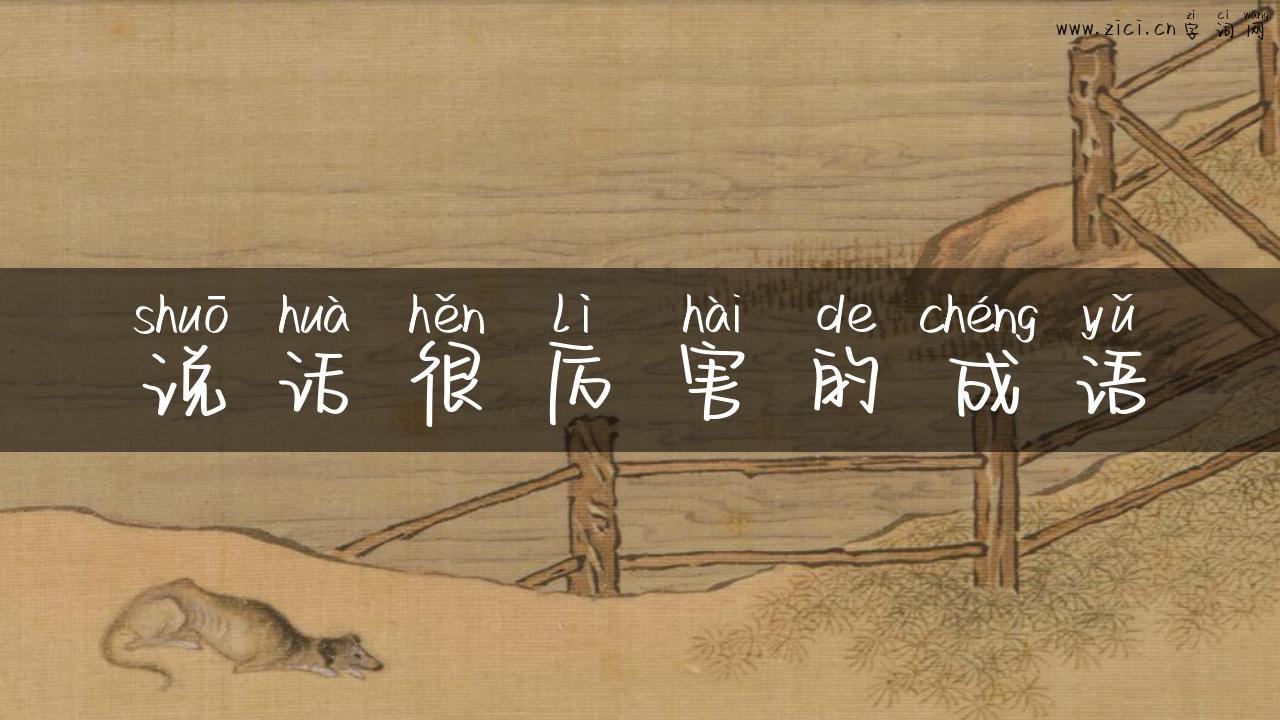 zì cí wǎng
www.zici.cn 字词网
shuō huà hěn lì hài de chéng yǔ
说话很厉害的成语